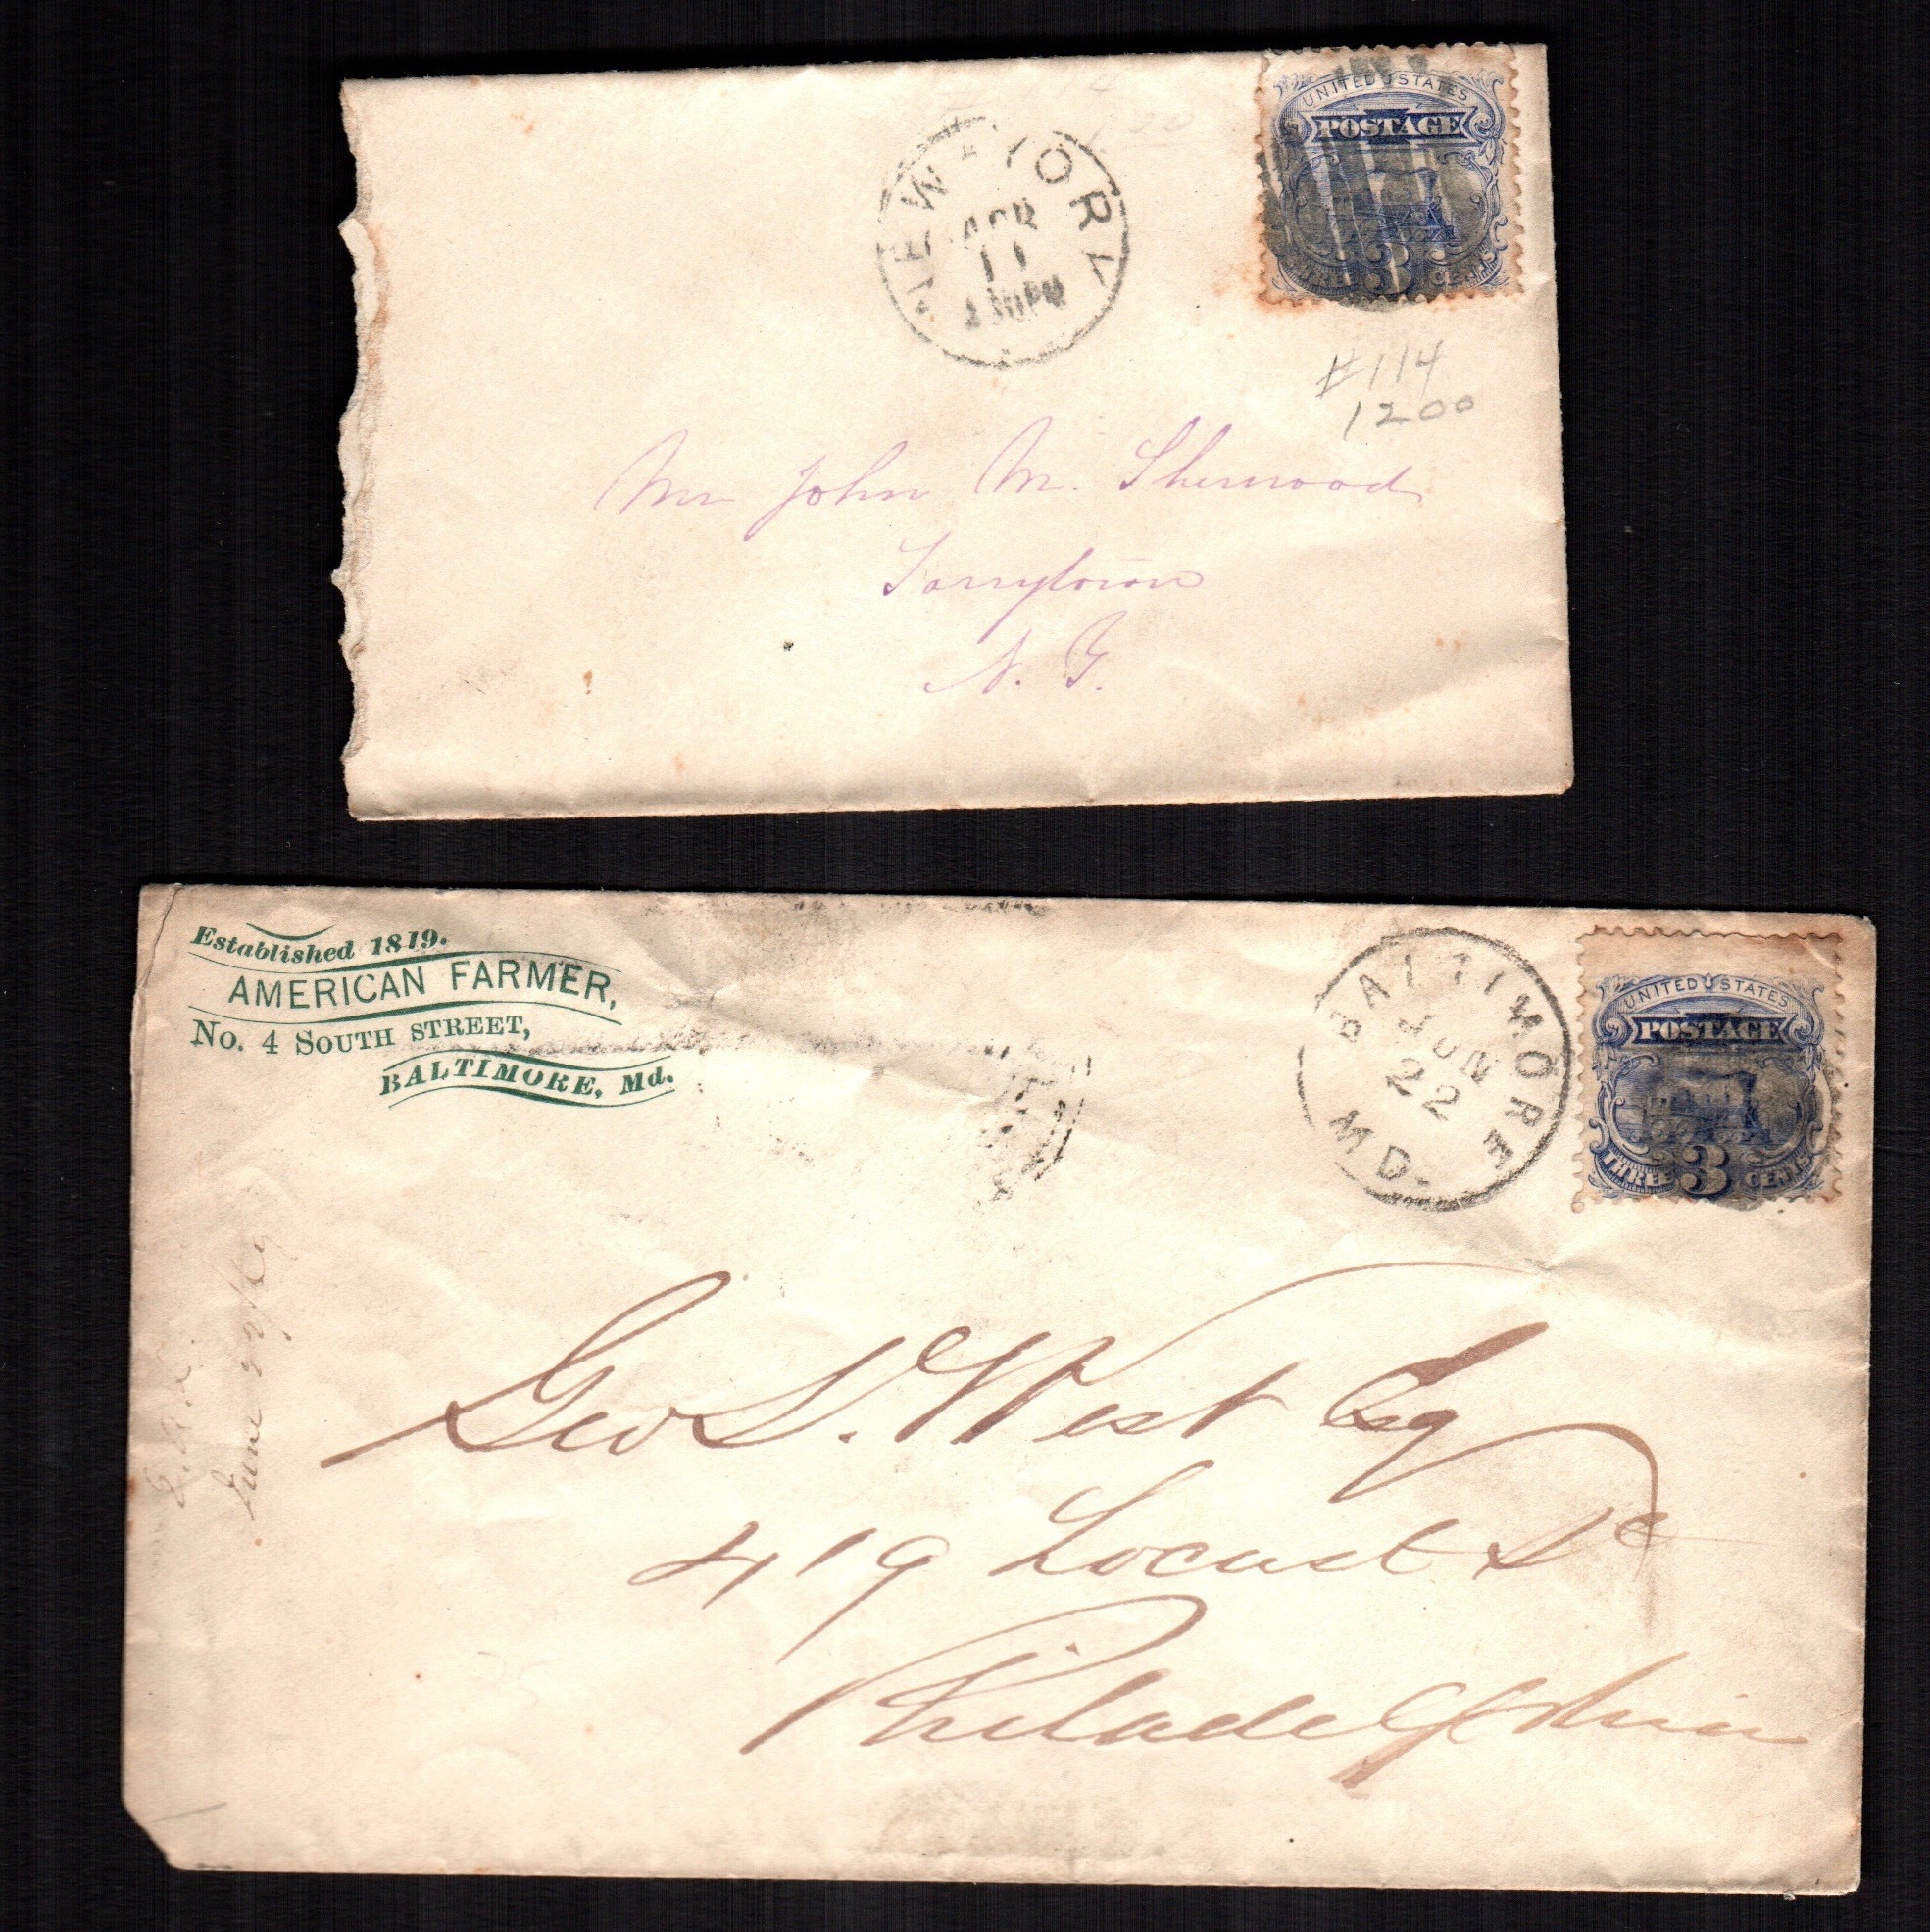 UNITED STATES
POSTAGE
3 CENTS
NEW YORK
APR
11
#114
1200
Mr John M. Sherwood
Tarrytown
N. Y.
Established 1819.
AMERICAN FARMER,
No. 4 SOUTH STREET,
BALTIMORE, Md.
BALTIMORE
JUN
22
MD.
UNITED STATES
POSTAGE
THREE 3 CENTS
June
Geo S. West Esq
419 Locust St
Philadelphia